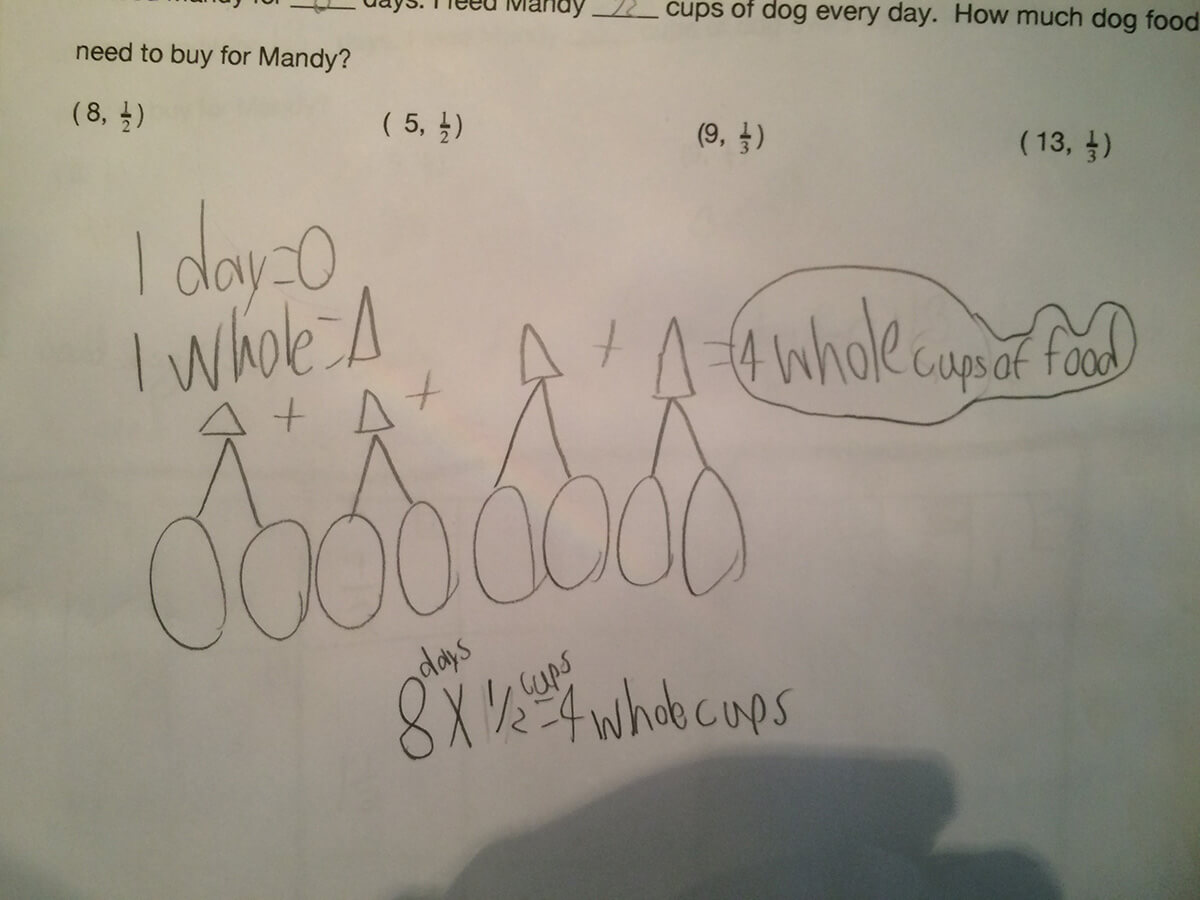 days. I feed Mandy ½ cups of dog every day. How much dog food
need to buy for Mandy?
(8, ½) (5, ½) (9, ⅓) (13, ⅓)
1 day=O
1 whole=Δ
Δ + Δ + Δ + Δ =4 whole cups of food
days cups
8 X 1/2 =4 whole cups